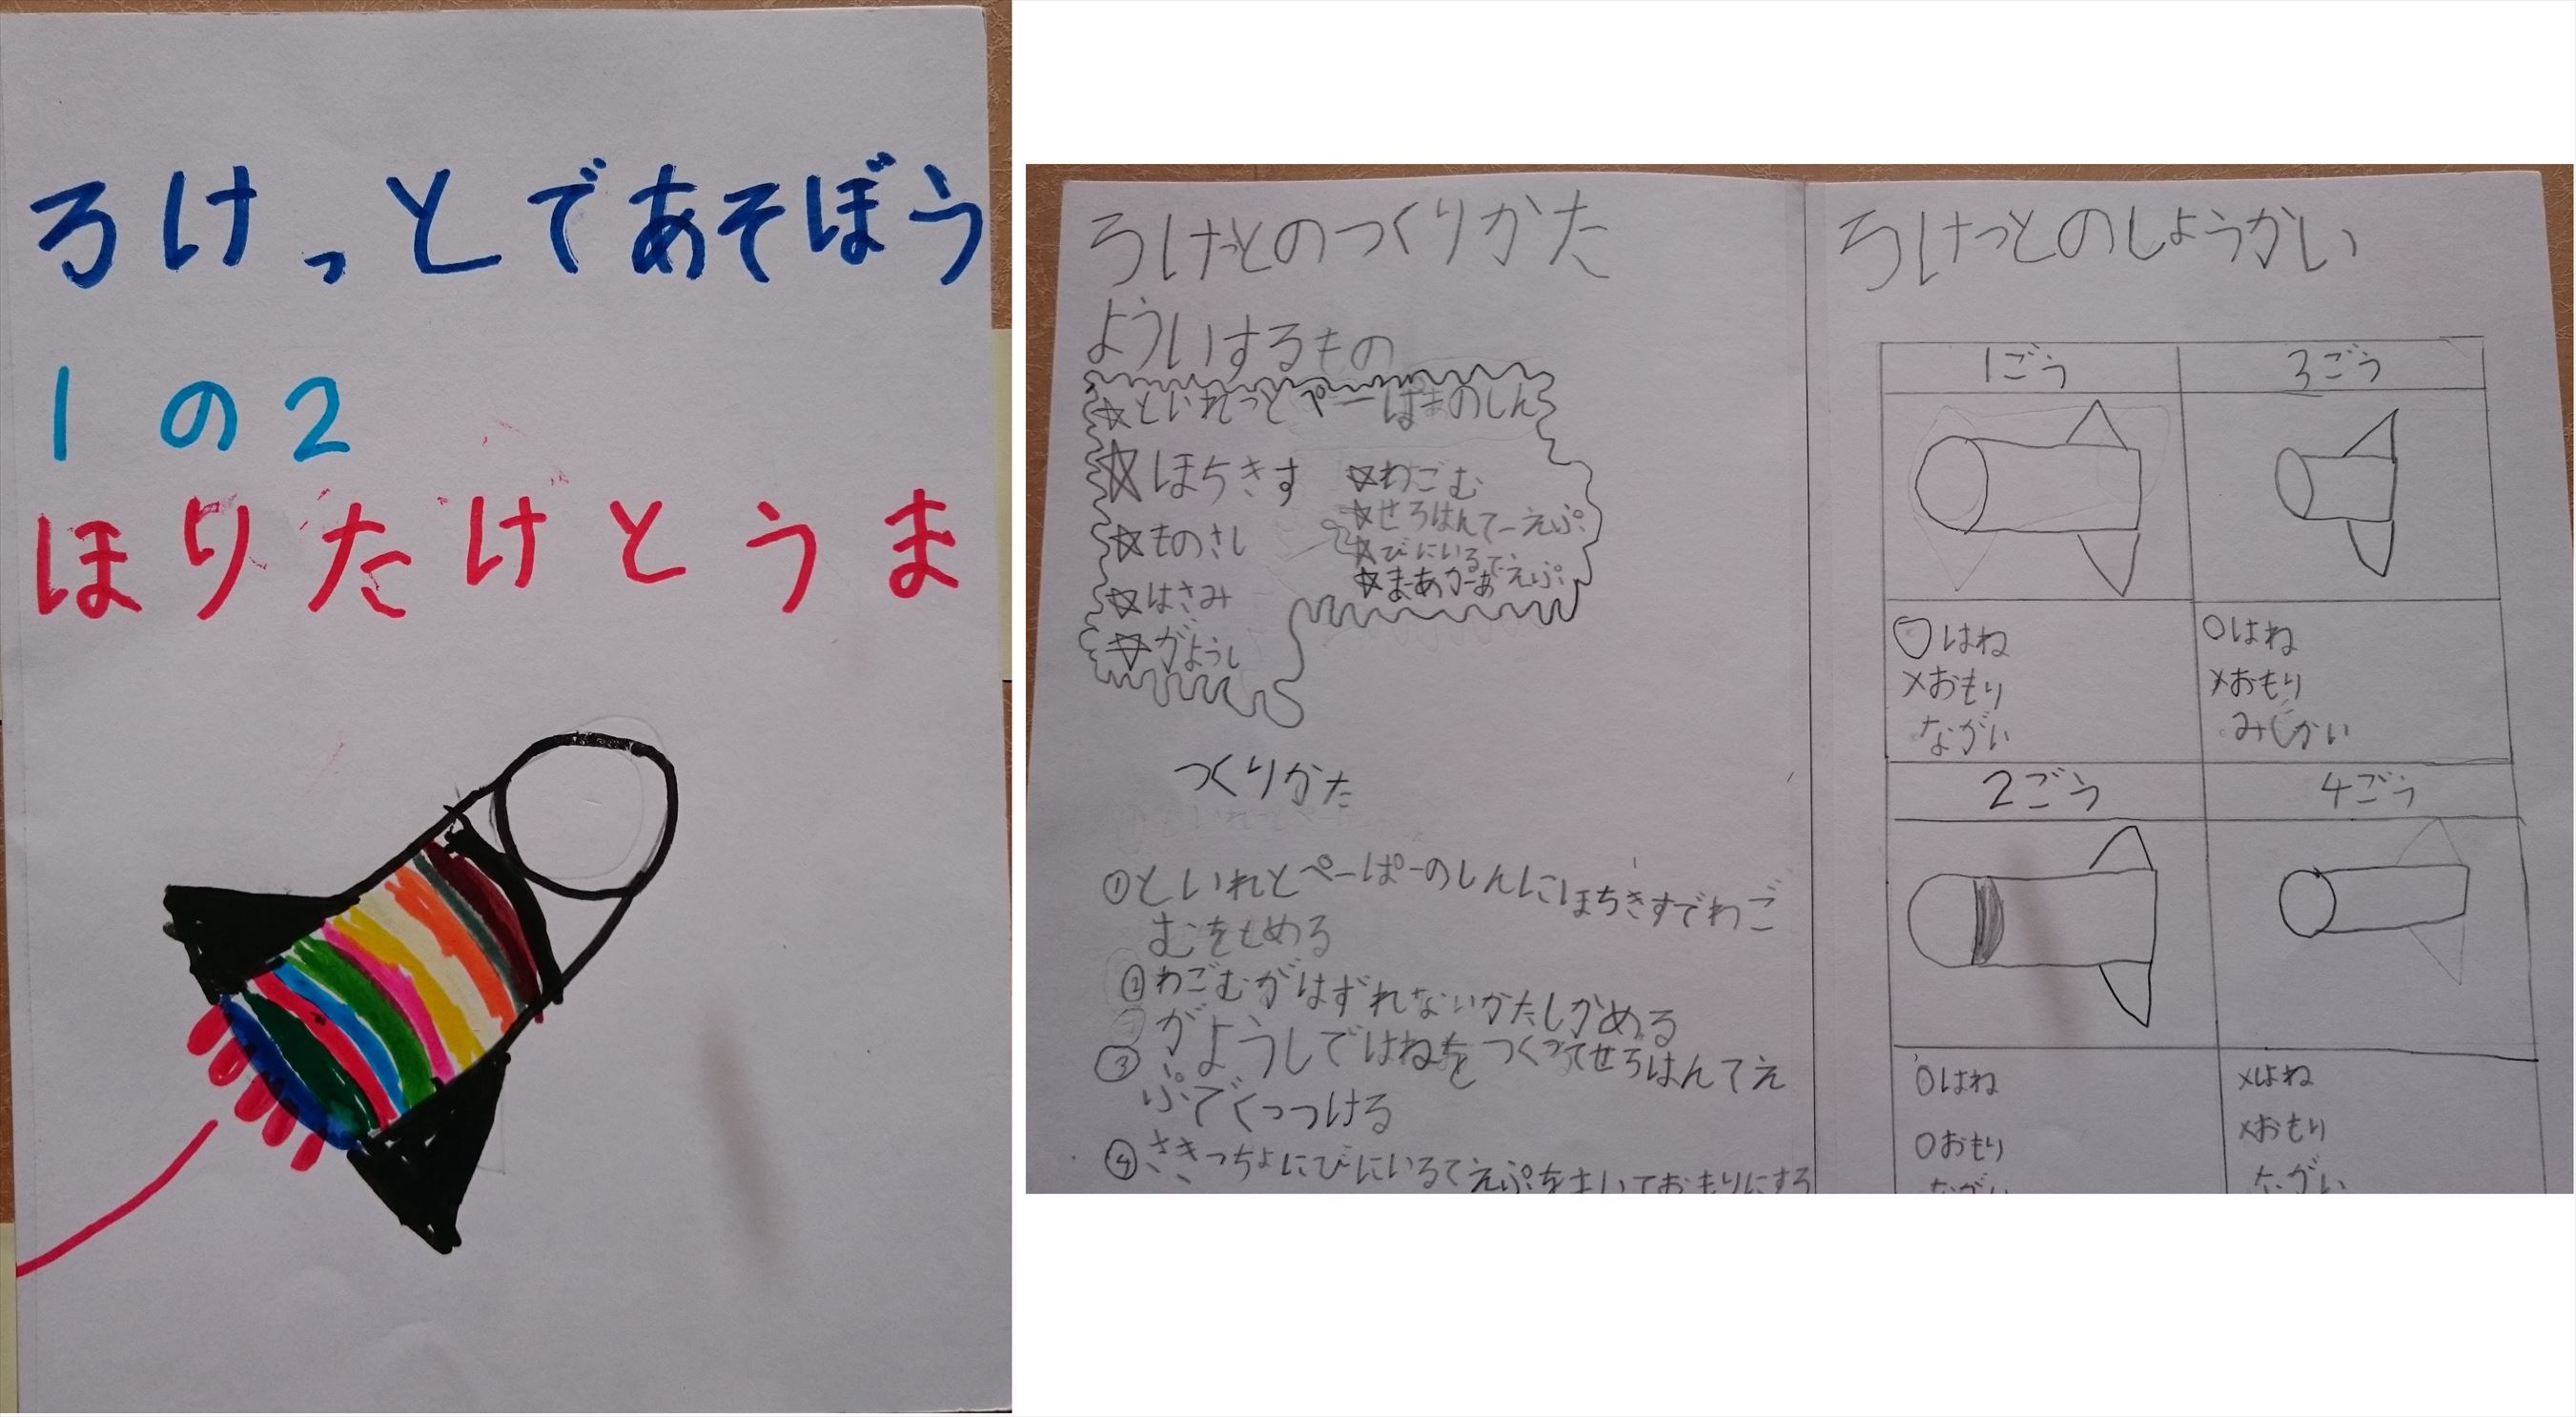 ろけっとであそぼう
1の2
ほりたけとうま
ろけっとのつくりかた
よういするもの
☆といれっとペーぱーのしん
☆ほちきす
☆ものさし
☆はさみ
☆がようし
☆わごむ
☆せろはんてーえぷ
☆びにいるてえぷ
☆まあかーあてえぷ
つくりかた
①といれとぺーぱーのしんにほちきすでわご
むをとめる
②わごむがはずれないかたしかめる
③がようしではねをつくってせろはんてえ
ぷでくっつける
④さきっちょにびにいるてえぷをまいておもりにする
ろけっとのしょうかい
1ごう
3ごう
○はね
×おもり
ながい
○はね
×おもり
みじかい
2ごう
4ごう
○はね
○おもり
ながい
×はね
×おもり
ながい